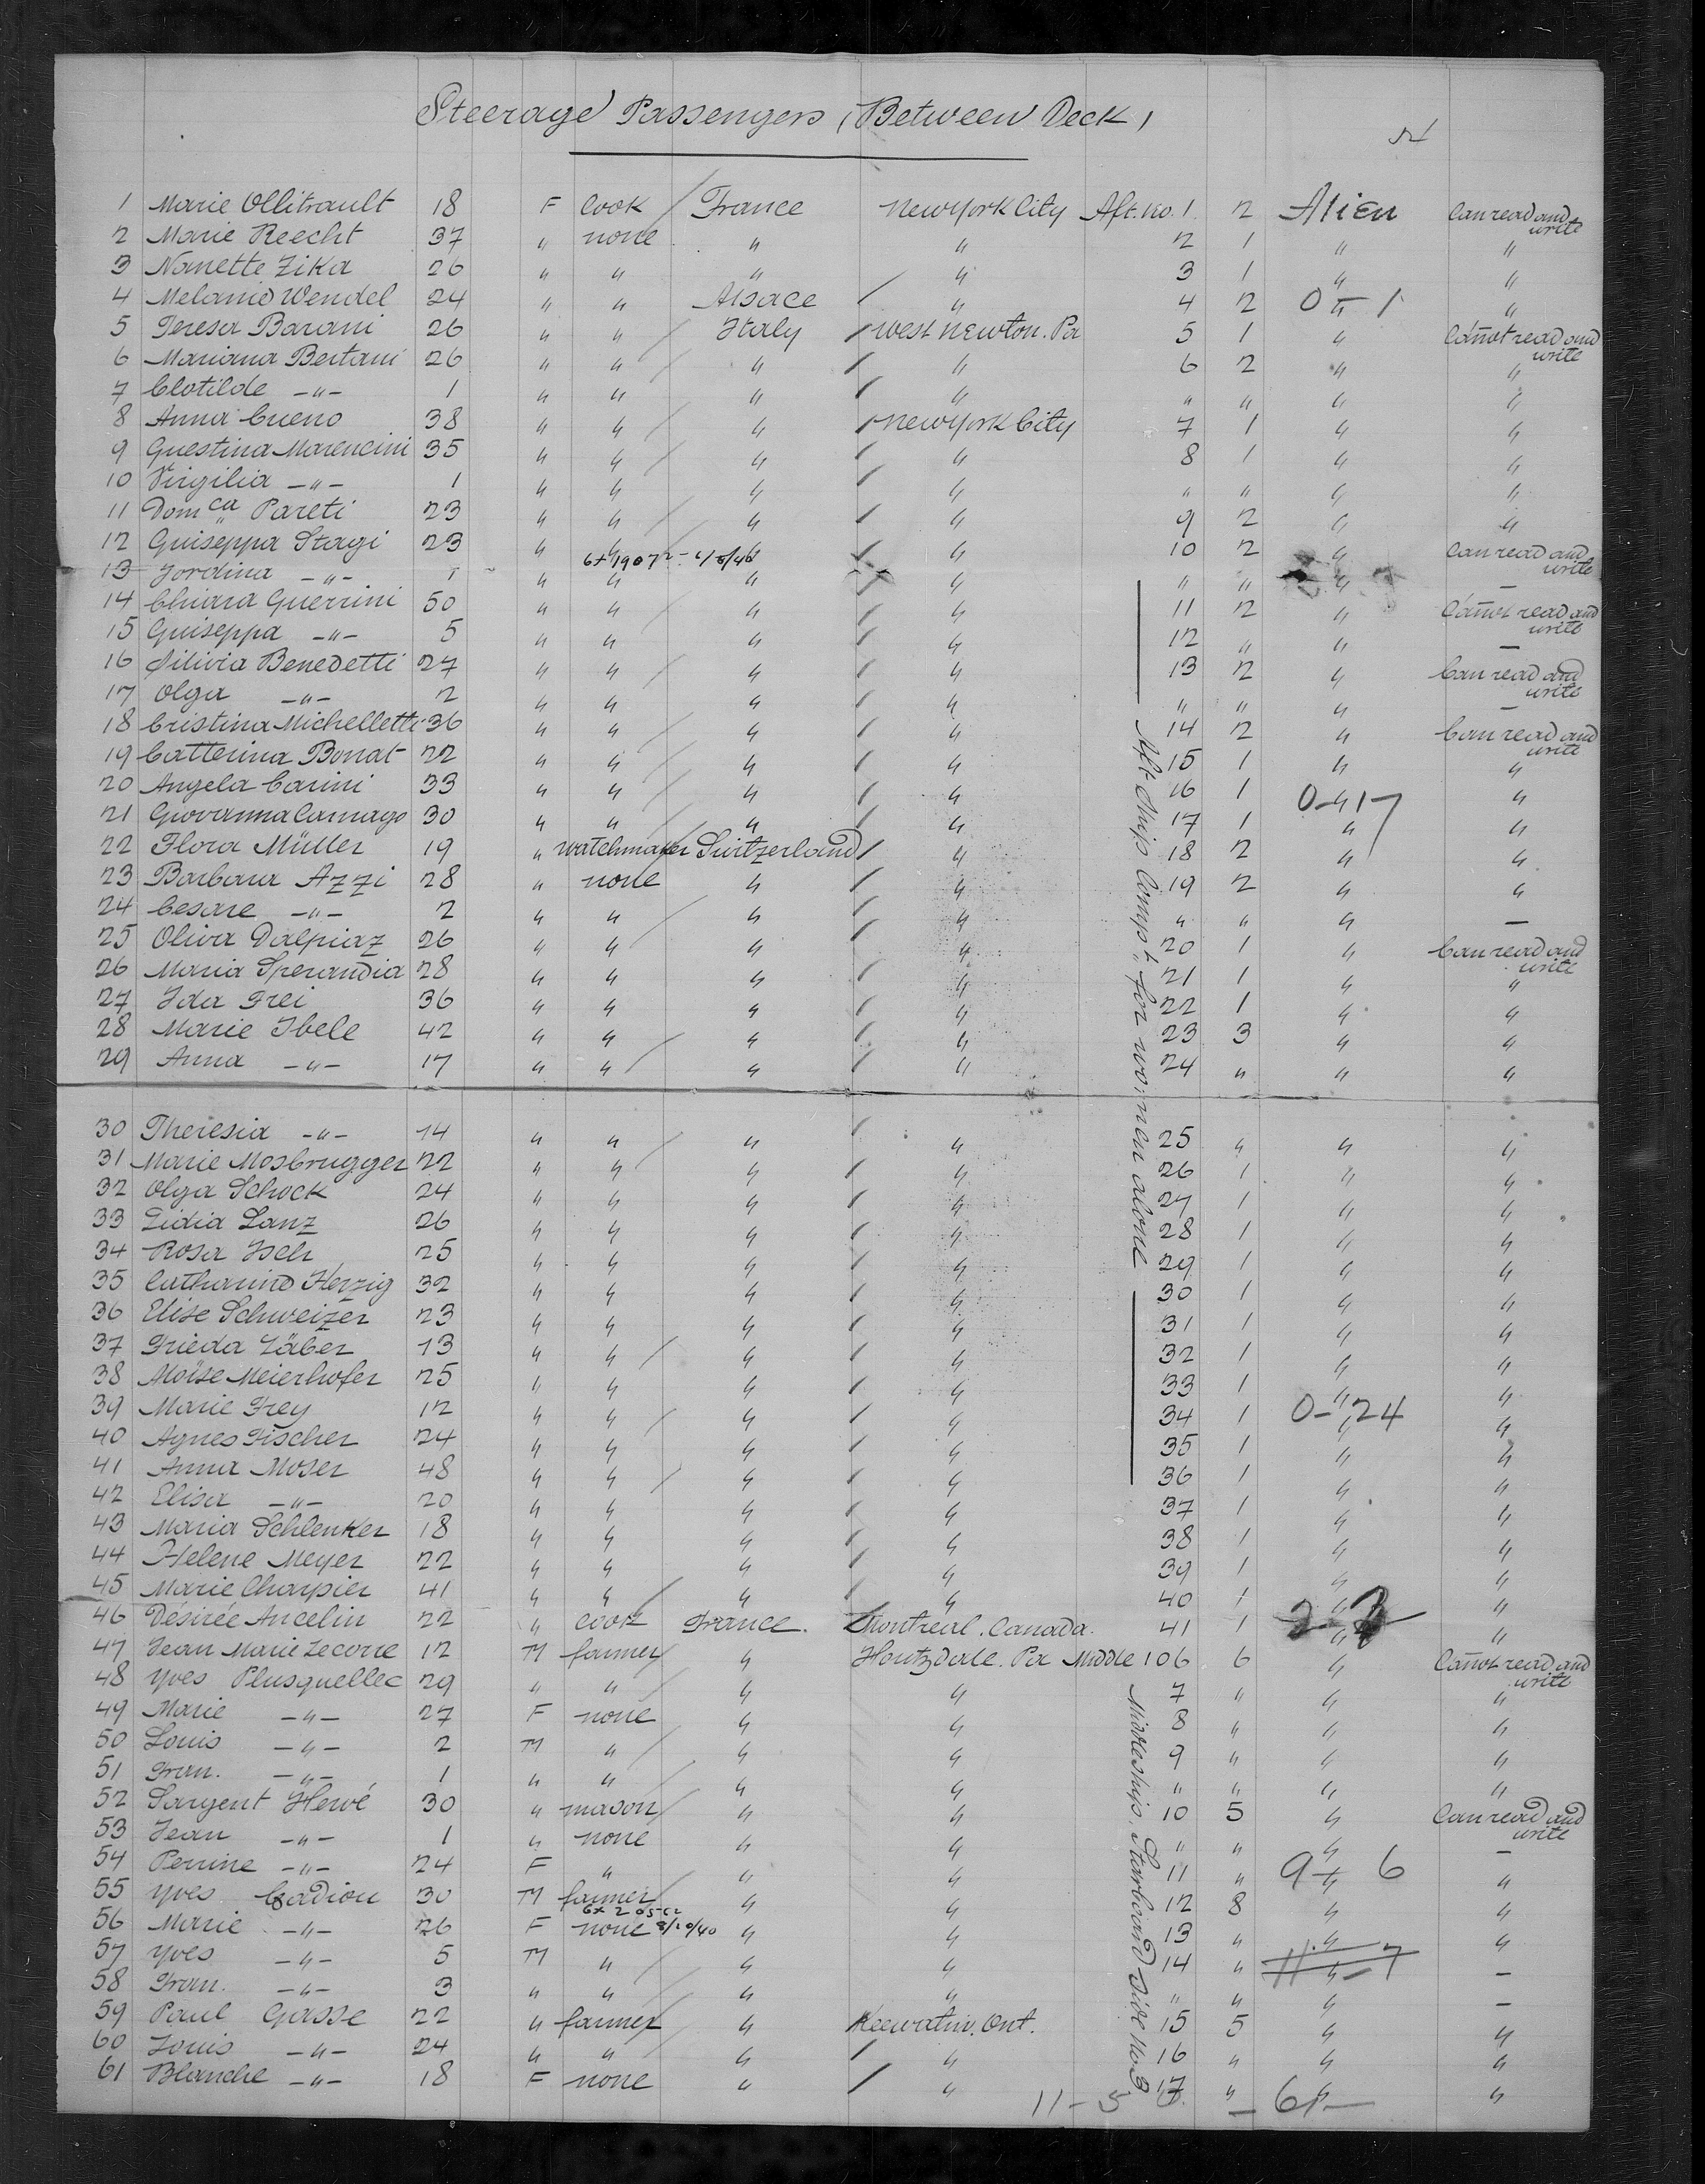 Steerage Passengers (Between Deck)
1 Marie Ollitrault 18 F Cook France New York City Aft. No. 1 2 Alien Can read and write
2 Marie Reecht 37 " none " " 2 1 " "
3 Nanette Zika 26 " " " " 3 1 " "
4 Melanie Wendel 24 " " Alsace " 4 2 " "
5 Teresa Barani 26 " " Italy West Newton. Pa 5 1 " Cañot read and write
6 Mariana Bertani 26 " " " " 6 2 " "
7 Clotilde -"- 1 " " " " " " " "
8 Anna Cueno 38 " " " New York City 7 1 " "
9 Guestina Marencini 35 " " " " 8 1 " "
10 Virgilia -"- 1 " " " " " " " "
11 Domca Pareti 23 " " " " 9 2 " "
12 Guiseppa Stagi 23 " " " " 10 2 " Can read and write
13 Jordina -"- 1 " " " " " " " –
14 Chiara Guerrini 50 " " " " 11 2 " Cañot read and write
15 Guiseppa -"- 5 " " " " 12 " " –
16 Silivia Benedetti 27 " " " " 13 2 " Can read and write
17 Olga -"- 2 " " " " " " " –
18 Cristina Michelletti 36 " " " " 14 2 " Can read and write
19 Catterina Bonat 22 " " " " 15 1 " "
20 Angela Carini 33 " " " " 16 1 " "
21 Giovanna Camago 30 " " " " 17 1 " "
22 Flora Müller 19 " watchmaker Switzerland " 18 2 " "
23 Barbara Azzi 28 " none " " 19 2 " "
24 Cesare -"- 2 " " " " " " " –
25 Oliva Dalpiaz 26 " " " " 20 1 " Can read and write
26 Maria Sperandia 28 " " " " 21 1 " "
27 Ida Frei 36 " " " " 22 1 " "
28 Marie Ibele 42 " " " " 23 3 " "
29 Anna -"- 17 " " " " 24 " " "
30 Theresia -"- 14 " " " " 25 " " "
31 Marie Mosbrugger 22 " " " " 26 1 " "
32 Olga Schock 24 " " " " 27 1 " "
33 Lidia Lanz 26 " " " " 28 1 " "
34 Rosa Isch 25 " " " " 29 1 " "
35 Catharine Herzig 32 " " " " 30 1 " "
36 Elise Schweizer 23 " " " " 31 1 " "
37 Frieda Zäber 13 " " " " 32 1 " "
38 Moïse Meierhofer 25 " " " " 33 1 " "
39 Marie Frey 12 " " " " 34 1 " "
40 Agnes Fischer 24 " " " " 35 1 " "
41 Anna Moser 48 " " " " 36 1 " "
42 Elisa -"- 20 " " " " 37 1 " "
43 Maria Schlenker 18 " " " " 38 1 " "
44 Helene Meyer 22 " " " " 39 1 " "
45 Marie Charpier 41 " " " " 40 1 " "
46 Désirée Ancelin 22 " cook France. Montreal. Canada. 41 1 " "
47 Jean Marie Lecorre 12 M farmer " Houtzdale. Pa Middle 106 6 " Cañot read and write
48 Yves Plusquellec 29 " " " " 7 " " "
49 Marie -"- 27 F none " " 8 " " "
50 Louis -"- 2 M " " " 9 " " "
51 Fran. -"- 1 " " " " " " " "
52 Sargent Hervé 30 " mason " " 10 5 " Can read and write
53 Jean -"- 1 " none " " " " " –
54 Perrine -"- 24 F " " " 11 " " "
55 Yves Cadiou 30 M farmer " " 12 8 " "
56 Marie -"- 26 F none " " 13 " " "
57 Yves -"- 5 M " " " 14 " " –
58 Fran. -"- 3 " " " " " " " –
59 Paul Gasse 22 " farmer " Keewatin. Ont. 15 5 " "
60 Louis -"- 24 " " " " 16 " " "
61 Blanche -"- 18 F none " " 17 " " "
Aft Ship Compt. for women alone
Middleship, Starboard Side No 3
0-1
0-17
0-24
9 + 6
11-7
11-5
61